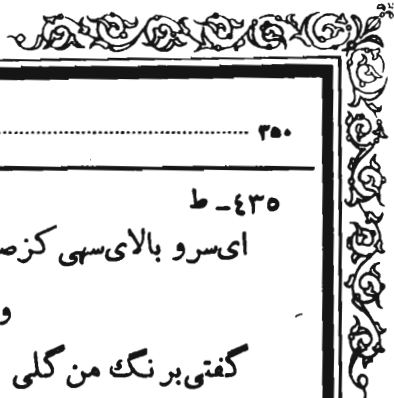 ٣٥٠
٤٣٥ـ ط
ای‌سرو بالای‌سهی کز
و
گفتی‌بر نگ من گلی